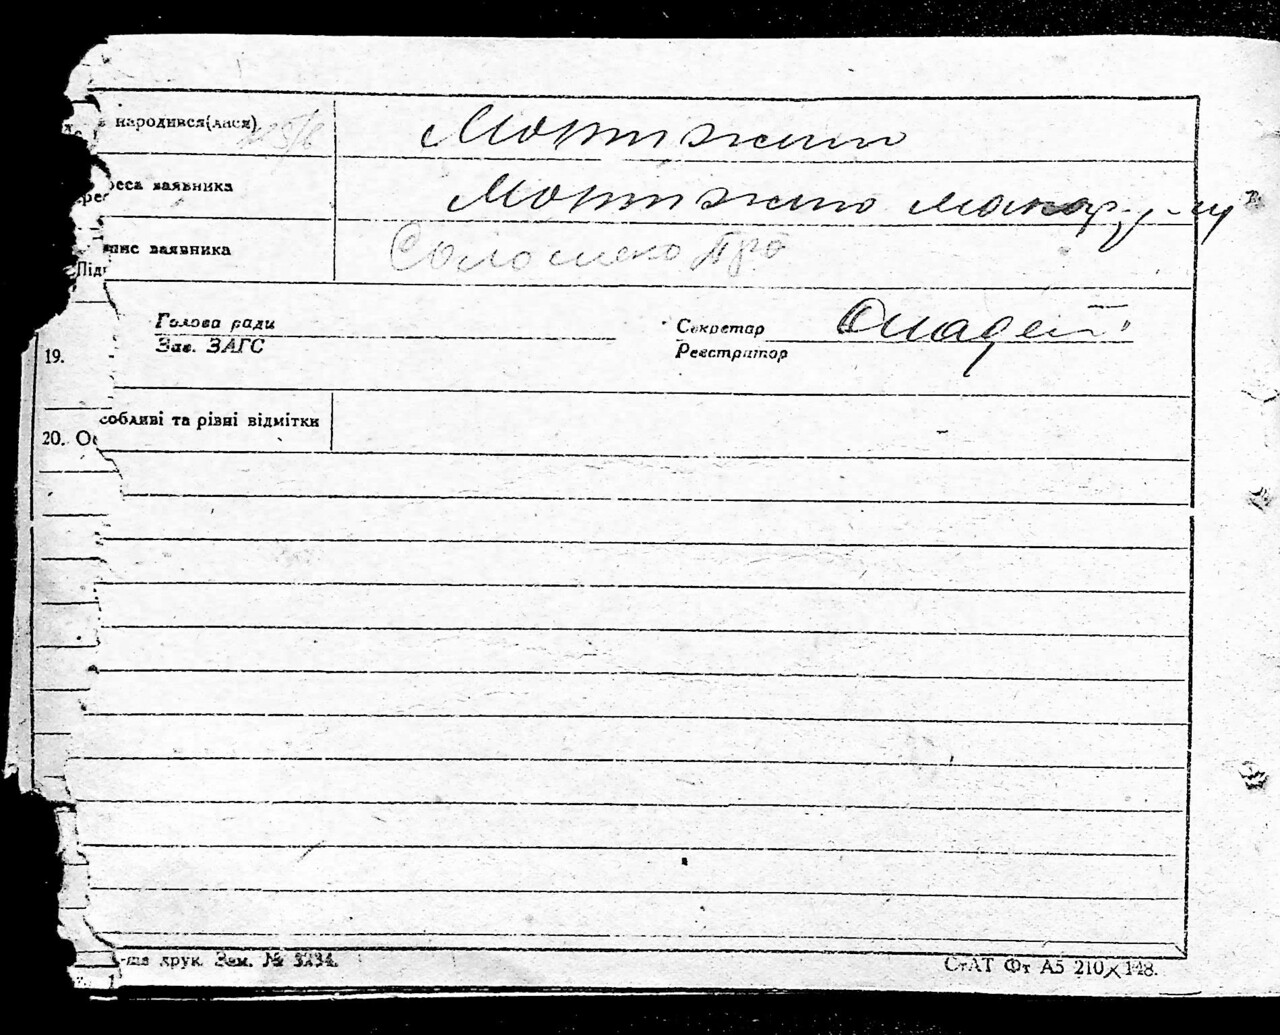 народився(лася) Мотижин
реса заявника Мотижино Макар. р-ну
пис заявника Соломенко Пра
Підп
Голова ради
Зав. ЗАГС
Секретар
Реєстратор
19.
собливі та рівні відмітки
20. Ос
друк. Зам. № 3234.
СтАТ Фт А5 210×148.